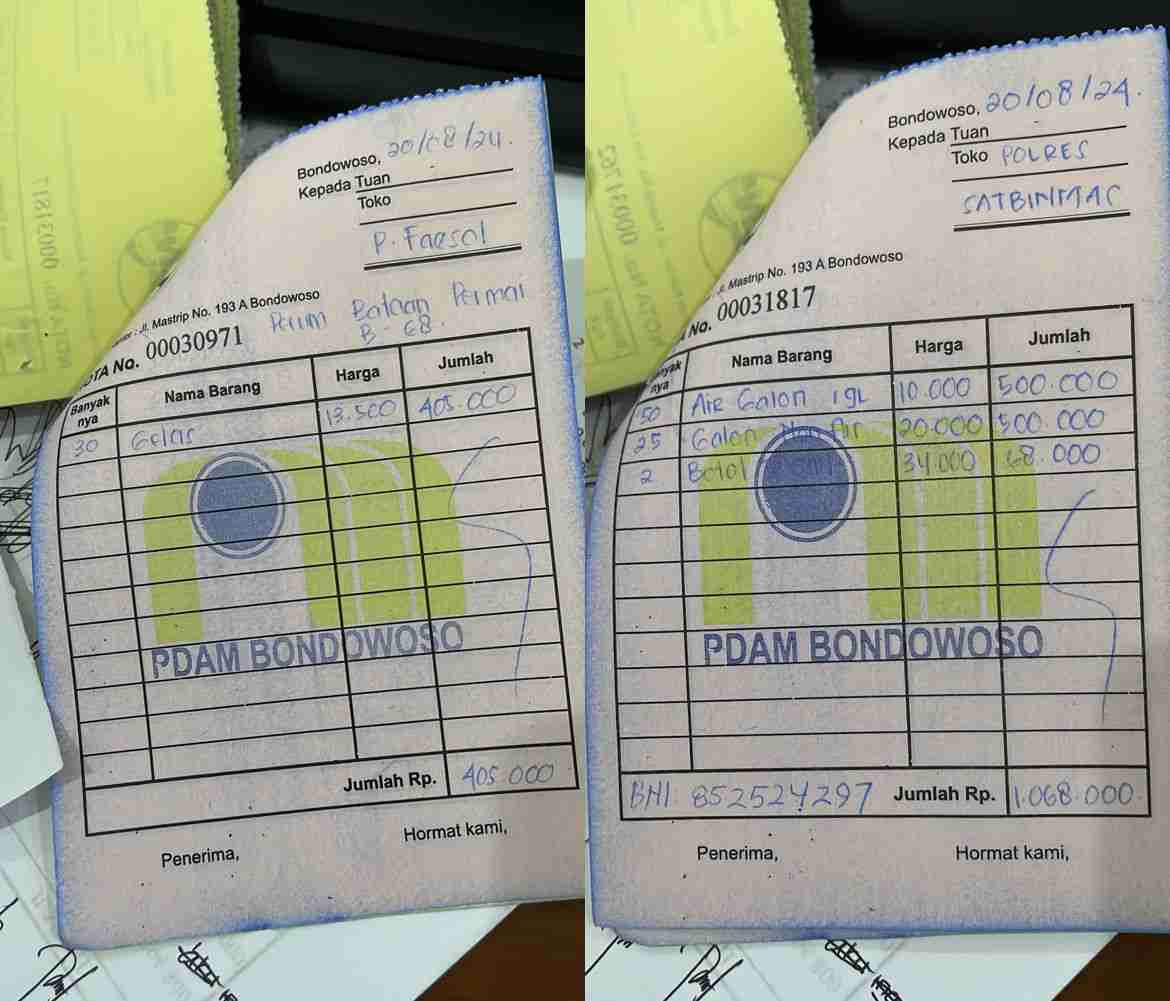 Bondowoso, 20/08/24.
Kepada Tuan
Toko
P. Faesol
Jl. Mastrip No. 193 A Bondowoso
Perum Bataan Permai
B - 68.
NOTA No. 00030971
Banyak nya Nama Barang Harga Jumlah
30 Gelas 13.500 405.000
PDAM BONDOWOSO
Jumlah Rp. 405.000
Penerima, Hormat kami,
00031817
Bondowoso, 20/08/24.
Kepada Tuan
Toko POLRES
SATBINMAS
Jl. Mastrip No. 193 A Bondowoso
No. 00031817
nyak nya Nama Barang Harga Jumlah
50 Air Galon 19L 10.000 500.000
25 Galon Air 20.000 500.000
2 Botol 34.000 68.000
PDAM BONDOWOSO
BNI. 852524297 Jumlah Rp. 1.068.000
Penerima, Hormat kami,
NOTA No.